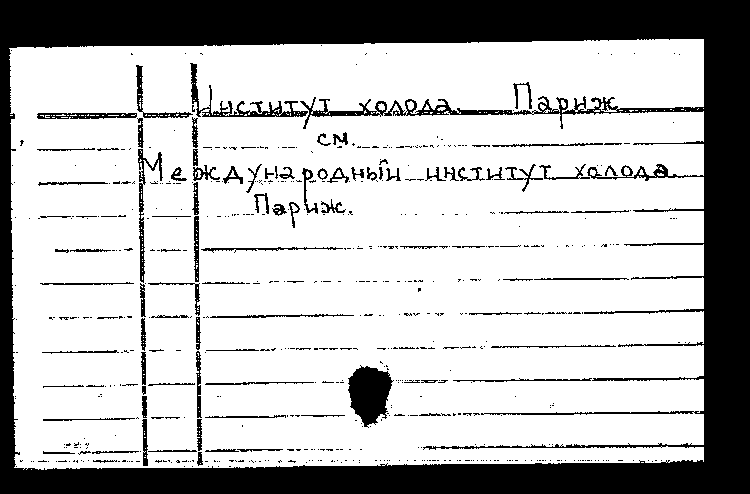 Институт холода. Париж
см.
Международный институт холода.
Париж.